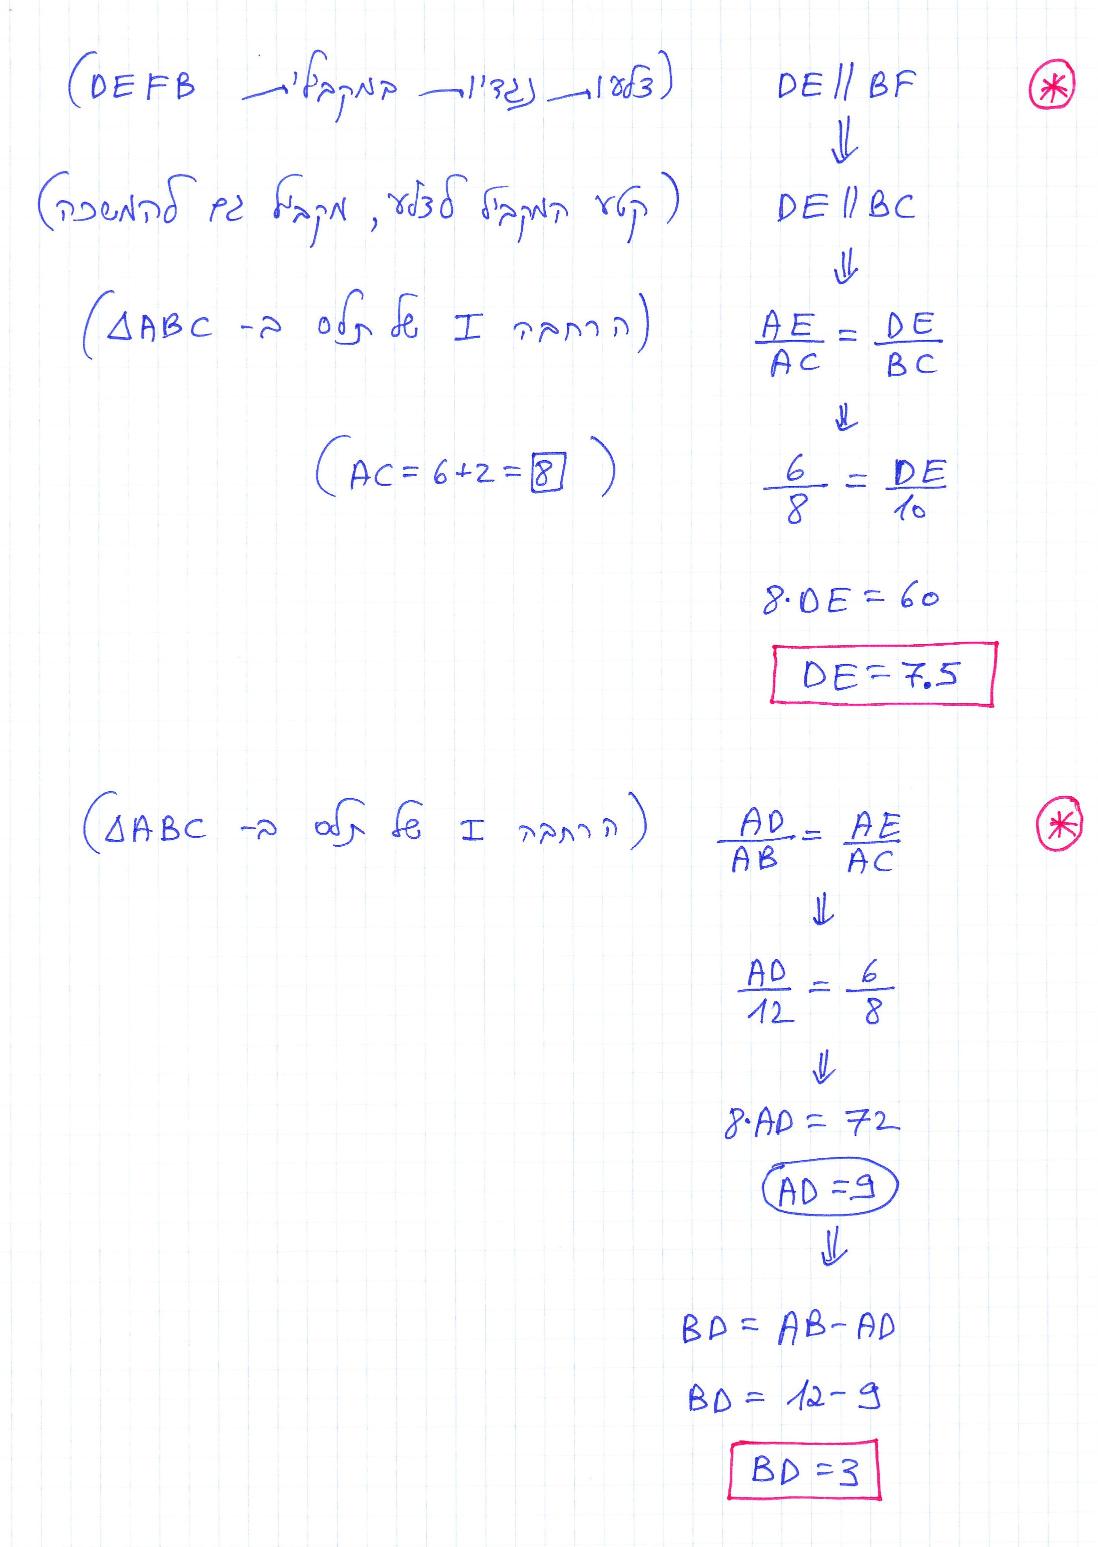 DE || BF (צלעות נגדיות במקבילית DEFB)
⇓
DE || BC (קטע המקביל לצלע, מקביל גם להמשכה)
⇓
AE/AC = DE/BC (הרחבה I של תלס ב- ΔABC)
⇓
6/8 = DE/10 (AC = 6+2 = 8)
8·DE = 60
DE = 7.5
AD/AB = AE/AC (הרחבה I של תלס ב- ΔABC)
⇓
AD/12 = 6/8
⇓
8·AD = 72
AD = 9
⇓
BD = AB - AD
BD = 12 - 9
BD = 3